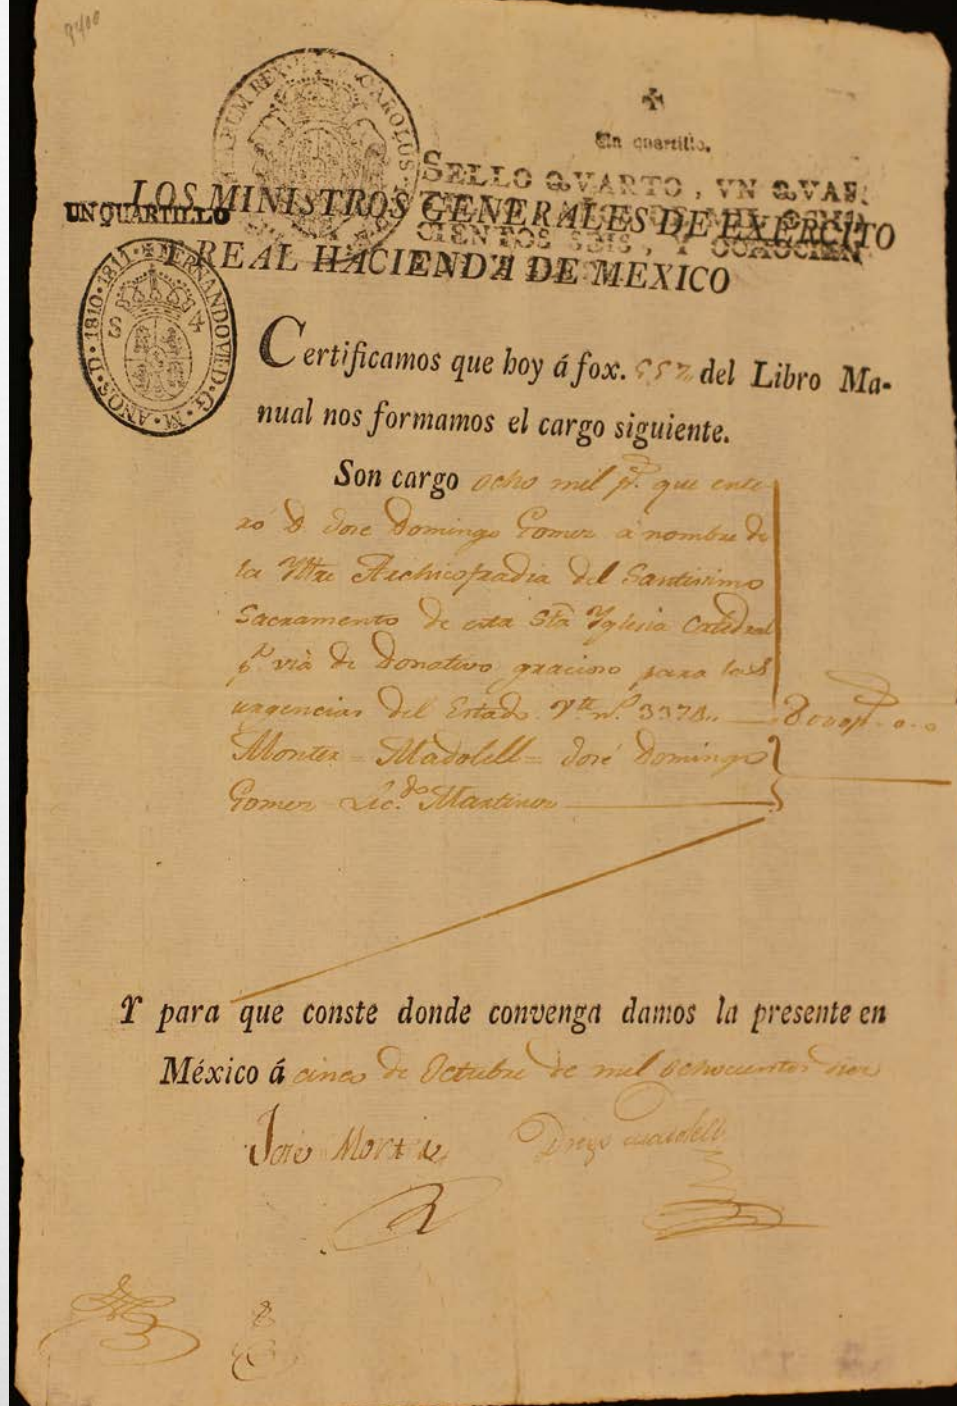 9400
CAROLUS
RUM REX
✠
Un quartillo.
SELLO QVARTO, VN QVAR
CIENTOS SEIS, Y OCHOCIEN
UN QUARTILLO
FERNANDO VII D. G.
AÑOS. D. 1810. 1811.
S 4
LOS MINISTROS GENERALES DE EXERCITO
Y REAL HACIENDA DE MEXICO
Certificamos que hoy á fox. 557 del Libro Ma-
nual nos formamos el cargo siguiente.
Son cargo ocho mil p.s que ente
ró D. Jose Domingo Gomez á nombre de
la Yltre Archicofradia del Santisimo
Sacramento de esta Sta Yglesia Catedral
p.r via de Donativo gracioso para las
urgencias del Estado. Yte n.o 3378. 8000p. 0. 0
Montes = Madolell = José Domingo
Gomez Lic.do Martinez
Y para que conste donde convenga damos la presente en
México á cinco de Octubre de mil ochocientos diez
José Montes Diego Madolell